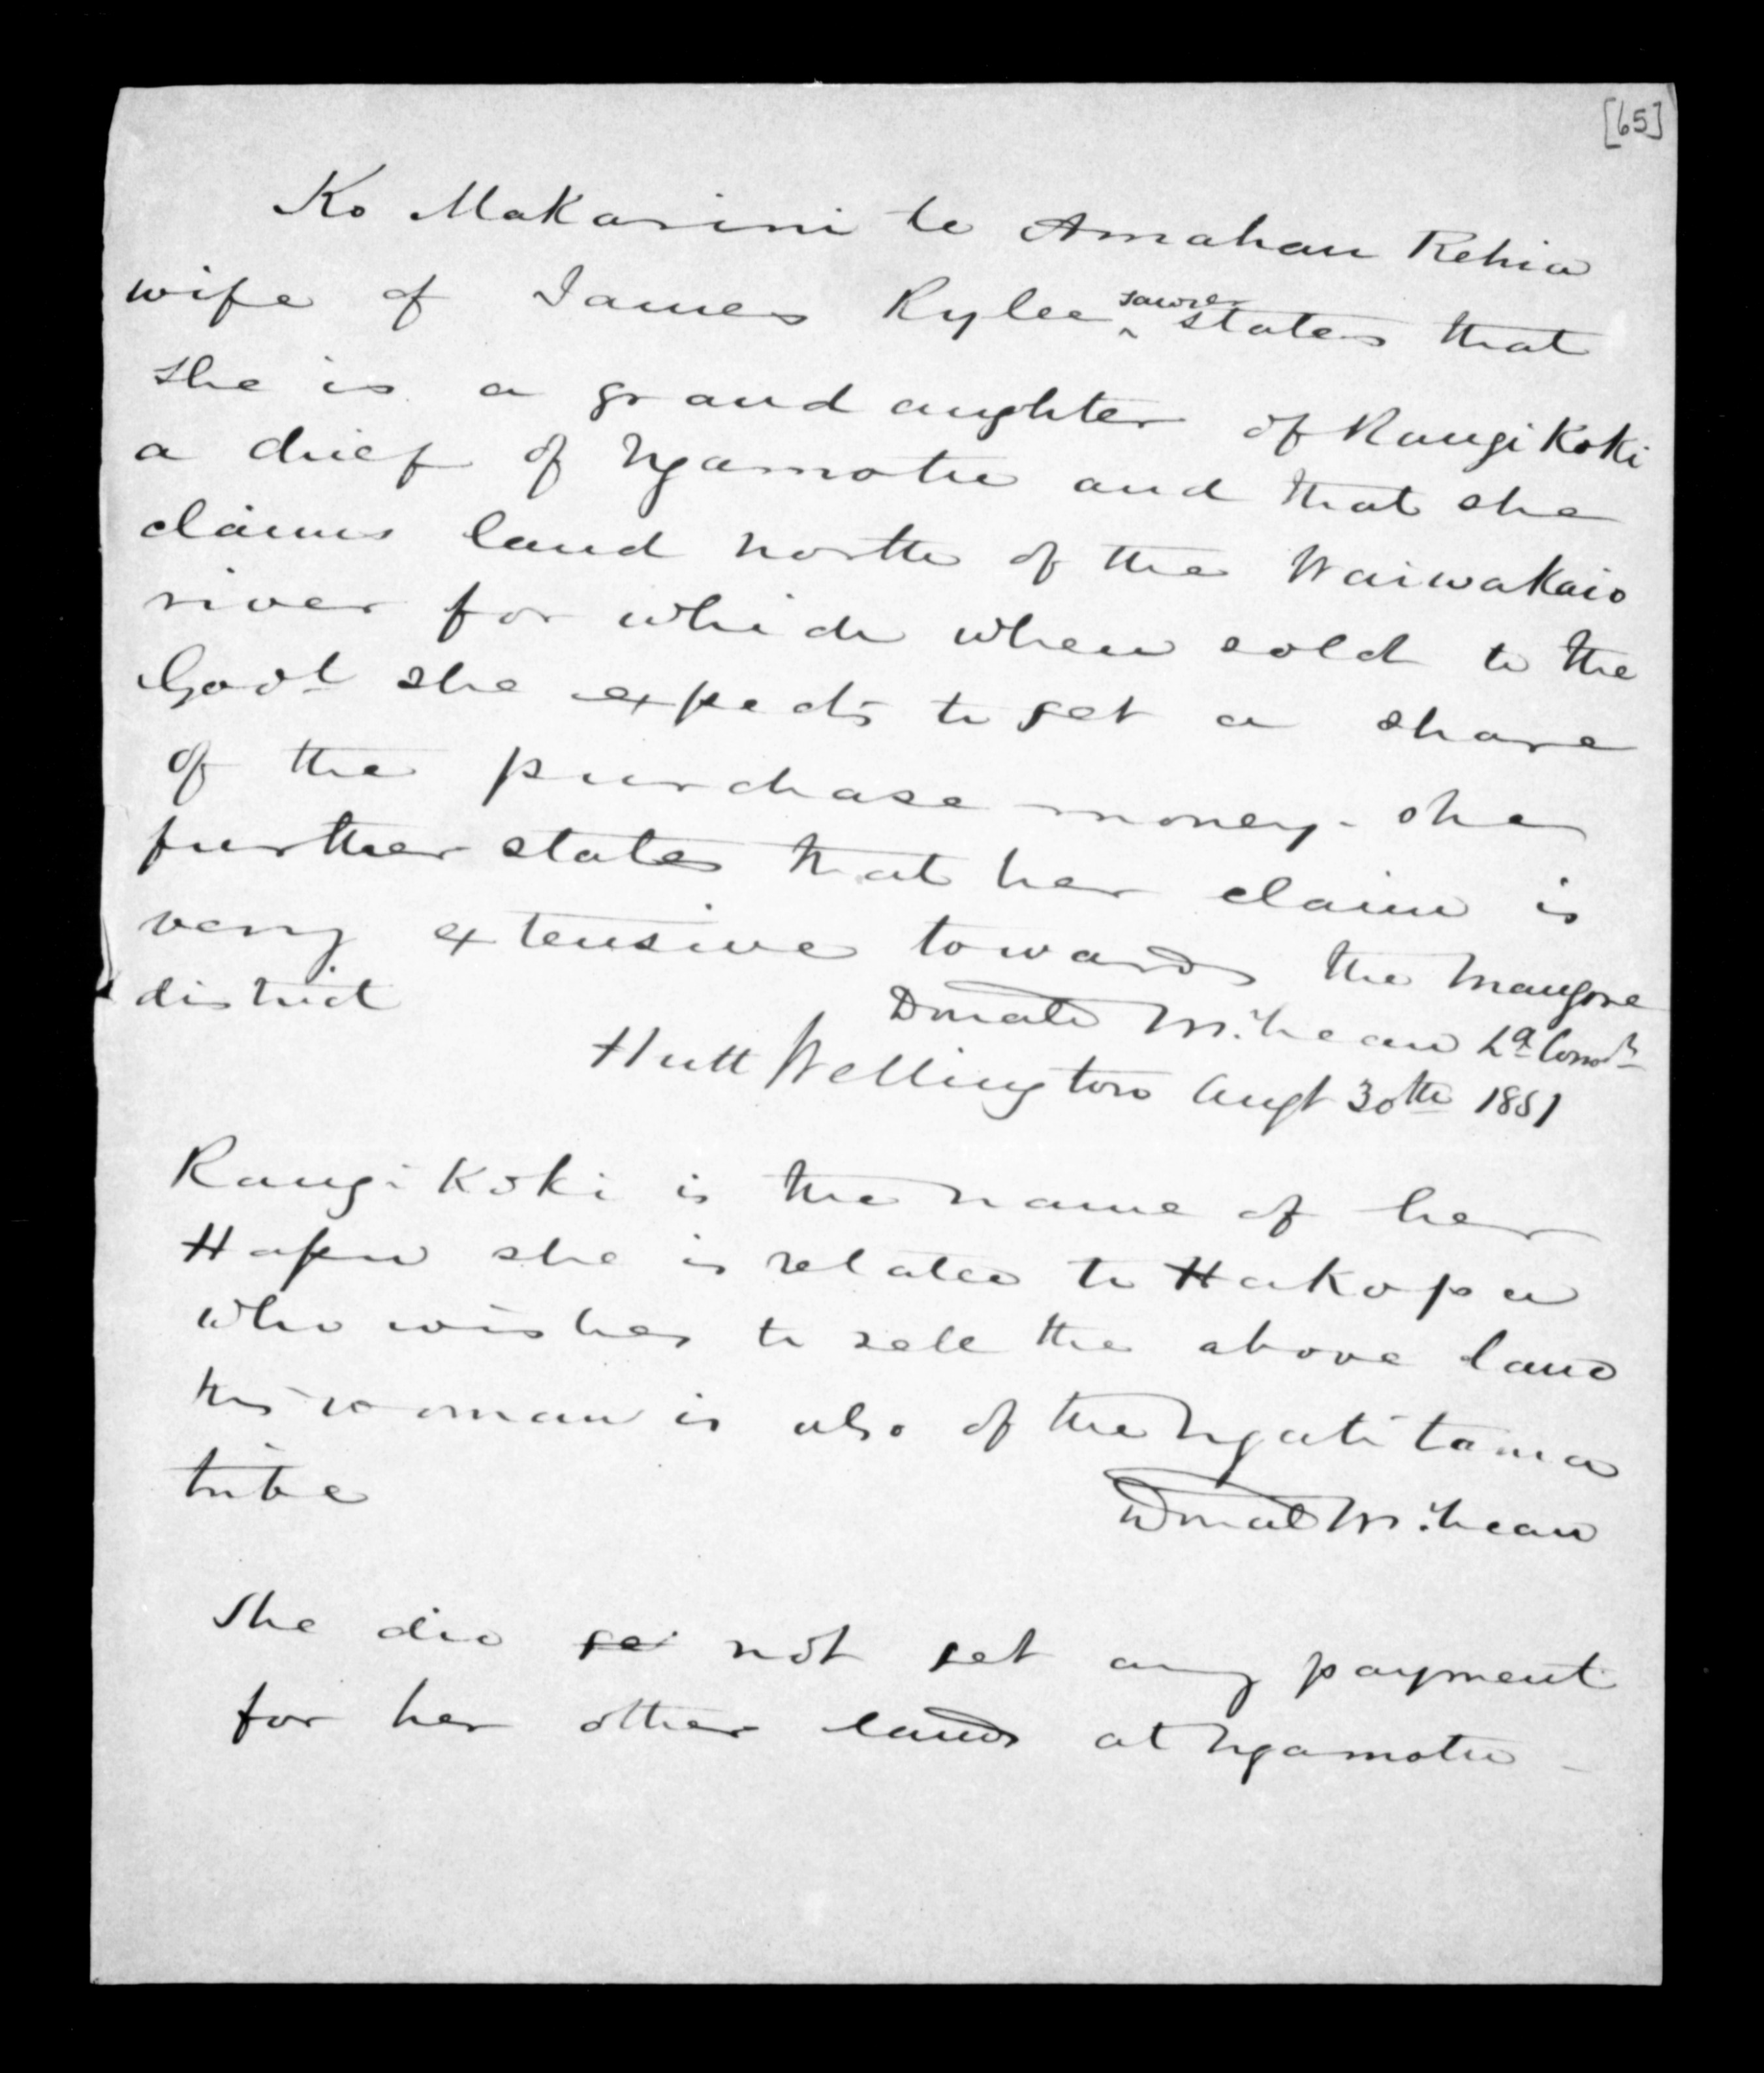 [65]
Ko Makarini te Amahau Rehia
wife of James Rylee ^sawyer states that
she is a grand aughter of Rangi Koki
a chief of Ngamotu and that she
claims land north of the Waiwakaio
river for which when sold to the
Govt she expects to get a share
of the purchase money - she
further states that her claim is
very extensive towards the Mangore
district
Donald McLean Ld Comr
Hutt Wellington Augt 30th 1851
Rangi Koki is the name of her
Hapu she is related to Hakopa
who wishes to sell the above land
this woman is also of the Ngati tama
tribe
Donald McLean
She did ge not get any payment
for her other lands at Ngamotu -